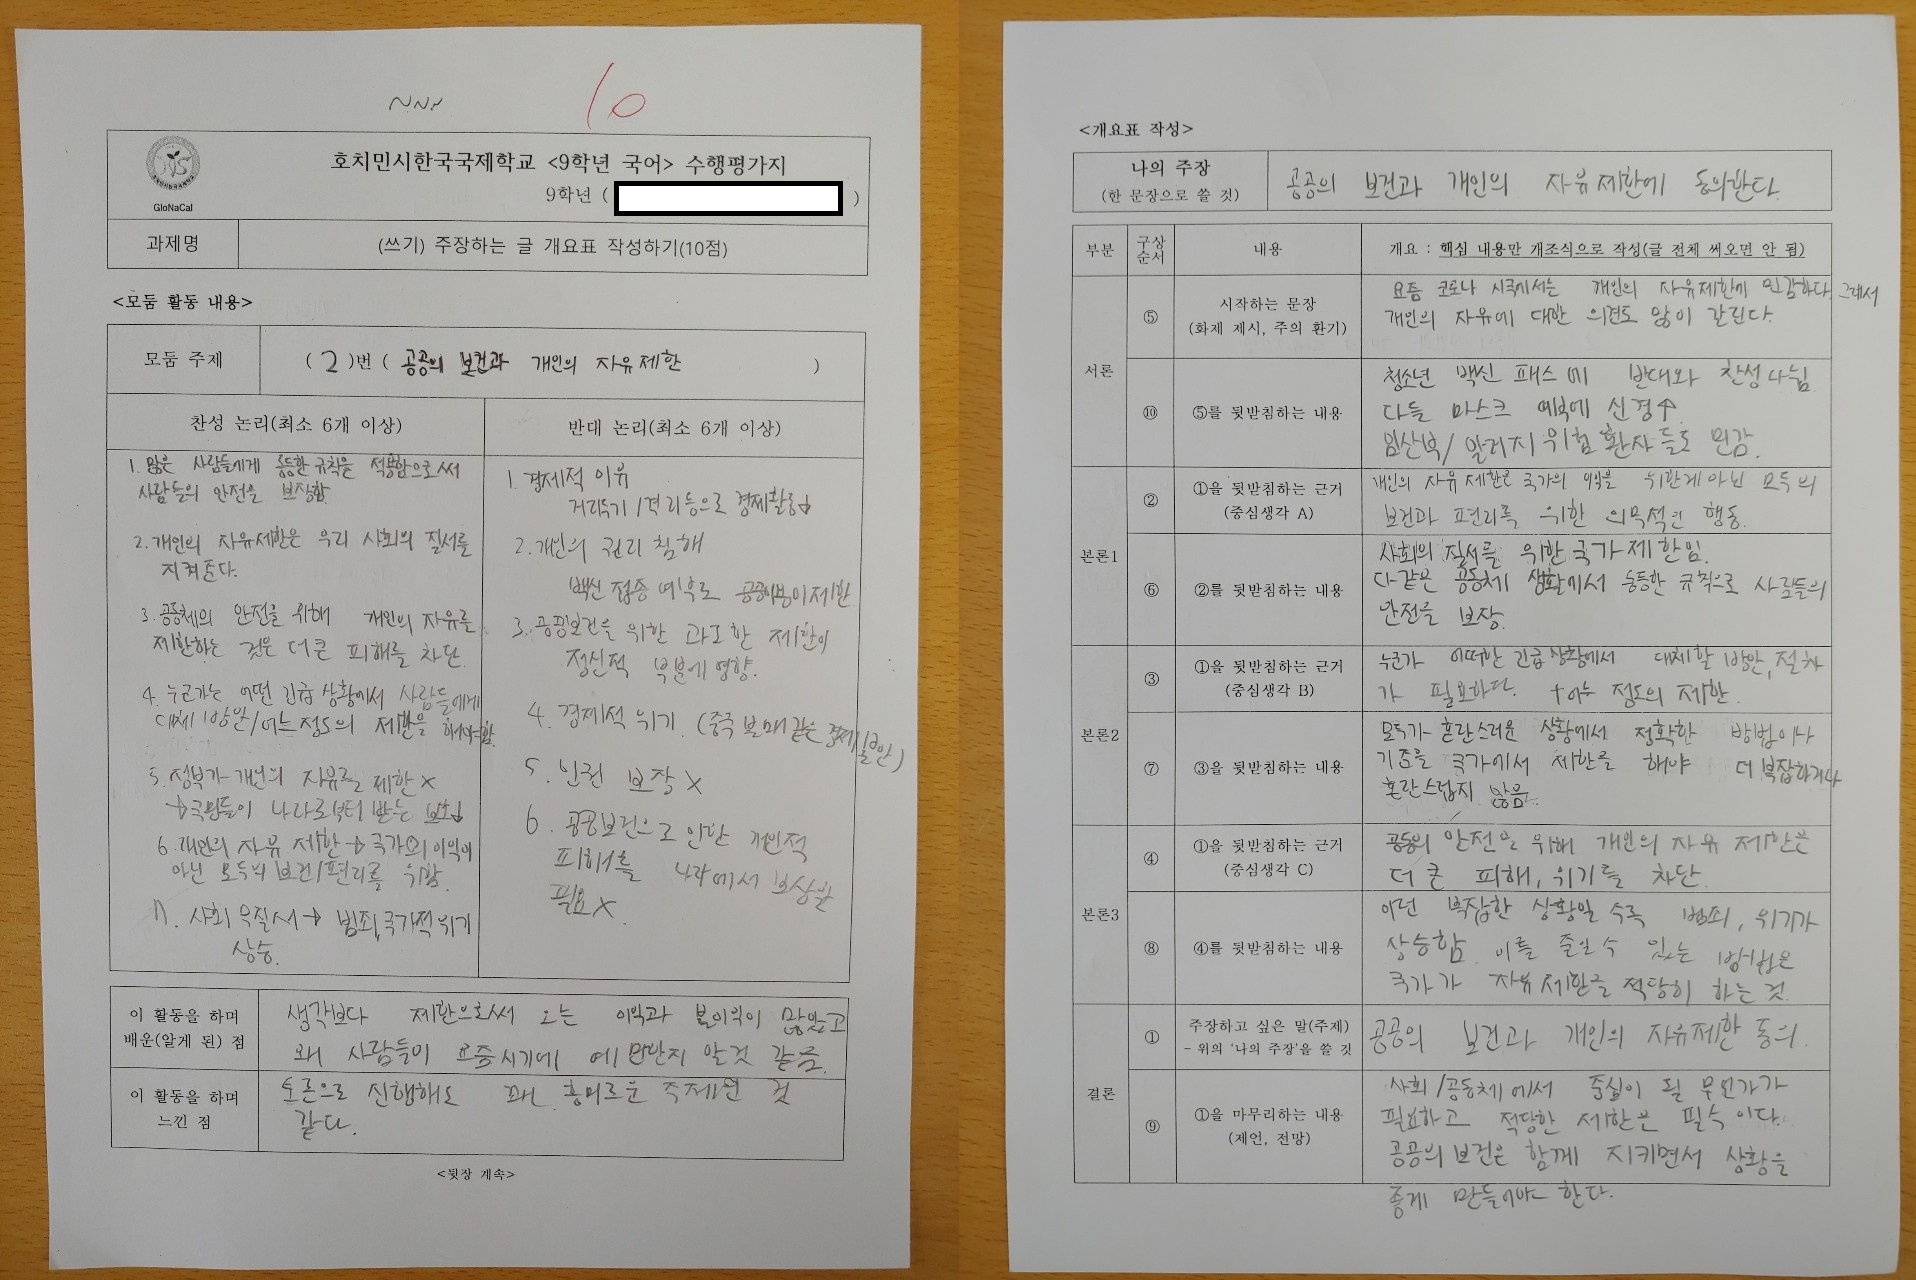 10
GloNaCal
호치민시한국국제학교 <9학년 국어> 수행평가지
9학년 ( )
과제명
(쓰기) 주장하는 글 개요표 작성하기(10점)
<모둠 활동 내용>
모둠 주제
( 2 )번 ( 공공의 보건과 개인의 자유제한 )
찬성 논리(최소 6개 이상)
1. 많은 사람들에게 동등한 규칙을 적용함으로써
사람들의 안전을 보장함.
2. 개인의 자유제한은 우리 사회의 질서를
지켜준다.
3. 공동체의 안전을 위해 개인의 자유를
제한하는 것은 더 큰 피해를 차단.
4. 누군가는 어떤 긴급 상황에서 사람들에게
대체 방안/어느정도의 제한을 해야함.
5. 정부가 개인의 자유를 제한 X
→국민들이 나라로부터 받는 보호↓
6. 개인의 자유 제한→국가의 이익이
아닌 모두의 보건/편리를 위함.
7. 사회 무질서→ 범죄, 국가적 위기
상승.
반대 논리(최소 6개 이상)
1. 경제적 이유
거리두기/격리등으로 경제활동↓
2. 개인의 권리 침해
백신 접종 여부로 공공이용이 제한
3. 공공보건을 위한 과도한 제한이
정신적 부분에 영향.
4. 경제적 위기. (중국 봉쇄같은
5. 인권 보장 X
6. 공공보건으로 인한 개인적
피해를 나라에서 보상할
필요X.
이 활동을 하며
배운(알게 된) 점
생각보다 제한으로써 오는 이익과 불이익이 많았고
왜 사람들이 요즘시기에 예민한지 알것 같음.
이 활동을 하며
느낀 점
토론으로 진행해도 꽤 흥미로운 주제인 것
같다.
<뒷장 계속>
<개요표 작성>
나의 주장
(한 문장으로 쓸 것)
공공의 보건과 개인의 자유제한에 동의한다.
부분
구상
순서
내용
개요 : 핵심 내용만 개조식으로 작성(글 전체 써오면 안 됨)
서론
⑤
시작하는 문장
(화제 제시, 주의 환기)
요즘 코로나 시국에서는 개인의 자유제한에 민감하다. 그래서
개인의 자유에 대한 의견도 많이 갈린다.
⑩
⑤를 뒷받침하는 내용
청소년 백신 패스에 반대와 찬성 나뉨.
다들 마스크 여부에 신경↑
임산부/알러지 위험 환자들도 민감.
본론1
②
①을 뒷받침하는 근거
(중심생각 A)
개인의 자유 제한은 국가의 이익을 위한게 아닌 모두의
보건과 편리를 위한 의무적인 행동.
⑥
②를 뒷받침하는 내용
사회의 질서를 위한 국가 제한임.
다같은 공동체 생활에서 동등한 규칙으로 사람들의
안전을 보장.
본론2
③
①을 뒷받침하는 근거
(중심생각 B)
누군가 어떠한 긴급상황에서 대체할 방안, 절차
가 필요하다. +어느 정도의 제한.
⑦
③을 뒷받침하는 내용
모두가 혼란스러운 상황에서 정확한 방법이나
기준을 국가에서 제한을 해야 더 복잡하거나
혼란스럽지 않음.
본론3
④
①을 뒷받침하는 근거
(중심생각 C)
공동의 안전을 위해 개인의 자유 제한은
더 큰 피해, 위기를 차단.
⑧
④를 뒷받침하는 내용
이런 복잡한 상황일 수록 범죄, 위기가
상승함. 이를 줄일 수 있는 방법은
국가가 자유제한을 적당히 하는 것.
결론
①
주장하고 싶은 말(주제)
- 위의 '나의 주장'을 쓸 것
공공의 보건과 개인의 자유제한 동의.
⑨
①을 마무리하는 내용
(제언, 전망)
사회/공동체에서 중심이 될 무언가가
필요하고 적당한 제한은 필수이다.
공공의 보건은 함께 지키면서 상황을
좋게 만들어야 한다.